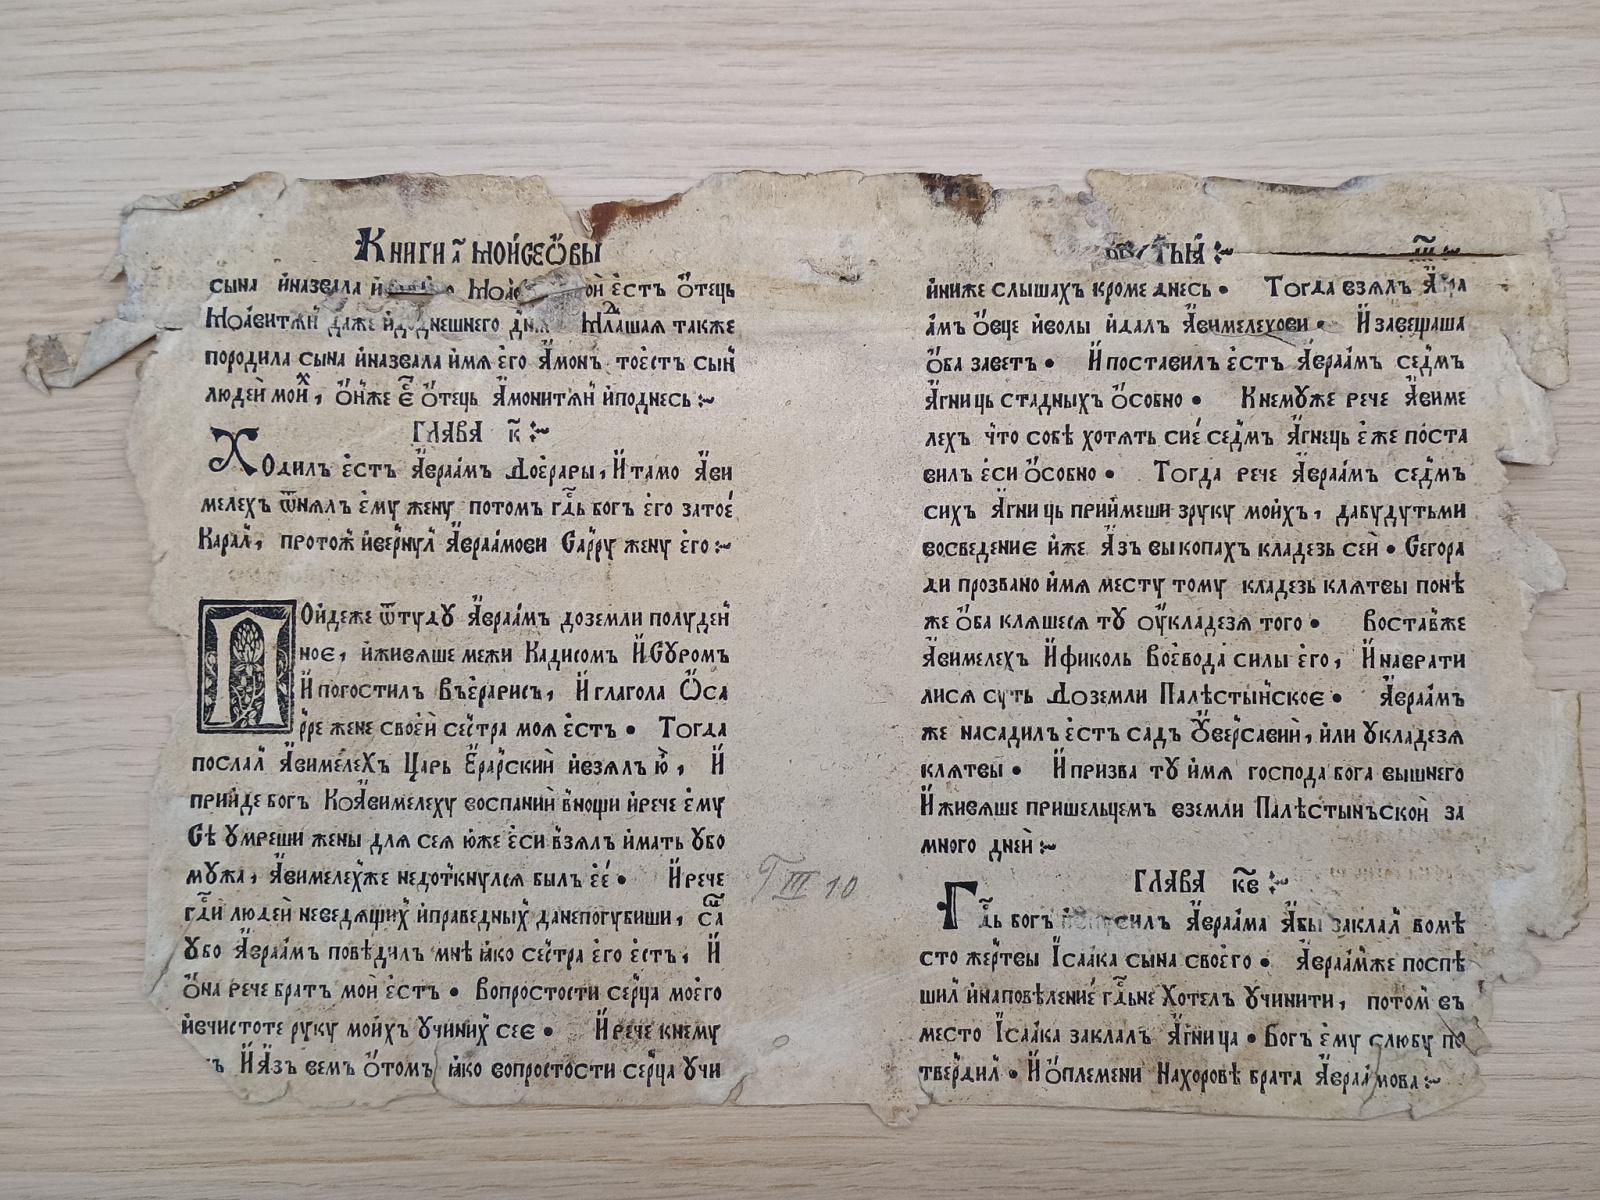 Книги а҃ Мойсеѡвы
сына йназвала й Моа ой ѐстъ ѻ҆тець
Моавитѧн҄ даже йдоднешнего дн҃ѧ Мла́шая также
породила сына йназвала ймѧ ѐго А҆монъ тоѐстъ сын҄
людей мои̾х, ѻ҆йже е҃ ѻ҆тець А҆монитѧн҄ йподнесь :~
ГЛАВА к҃ :~
Ходилъ ѐстъ А҆враамъ Доѐрары, Йтамо А҆ви
мелехъ ѿнялъ ѐму жену потомъ гдь богъ ѐго затоѐ
Карал҄, протож҄ йвернул҄ А҆враамови Сарру жену ѐго :~
Пойдеже ѿтудꙋ А҆враамъ доземли полуден҄
ное, йживяше межи Кадисомъ ЙСуромъ
Йпогостилъ Въѐрарисъ, Йглагола Ѽса
рре жене своей сестра моя ѐстъ • Тогда
послал҄ А҆вимелехъ Царь Ѐрарский йвзялъ ю, Й
прийде богъ КоА҆вимелеху воспаний вноши йрече ѐму
Сѣ ꙋмреши жены для сея юже ѐси взялъ ймать ꙋбо
мꙋжа, А҆вимелех҄же недоткнулся былъ ѐѐ • Йрече
гди людей неведящих҄ йправедных҄ данепогубиши, са
ꙋбо А҆враамъ повѣдилъ мнѣ ꙗко сестра ѐго ѐстъ, Й
ѻ҆на рече братъ мой ѐстъ • Вопростости серца моего
йвчистоте руку моихъ ꙋчиних҄ сее • Йрече кнему
ъ ЙА҆зъ вемъ ѻ҆томъ ꙗко вопростости серца ꙋчи
тыꙗ :~
йниже слышахъ кроме днесь • Тогда взялъ А҆вра
амъ ѻ҆вце йволы йдалъ А҆вимелехови • Йзавещаша
ѻ҆ба заветъ • Йпоставилъ ѐстъ А҆враамъ седмъ
А҆гницъ стадныхъ ѻ҆собно • Кнемꙋже рече А҆виме
лехъ что собѣ хотять сиѐ седмъ А҆гнець ѐже поста
вилъ ѐси ѻ҆собно • Тогда рече А҆враамъ седмъ
сихъ А҆гницъ приймеши зруку моихъ, дабудутьми
восведение йже А҆зъ выкопахъ кладезь сей • Сегора
ди прозвано ймя месту тому кладезь клятвы понѣ
же ѻ҆ба кляшеся тꙋ ѹкладезя того • Воставже
А҆вимелехъ Йфиколь Воѐвода силы ѐго, Йнаврати
лися суть Доземли Палѣстынское • А҆враамъ
же насадилъ ѐстъ садъ Ꙋверсавий, йли ꙋкладезя
клятвы • Йпризва тꙋ ймя господа бога вышнего
Йживяше пришельцемъ вземли Палѣстынъской за
много дней :~
ГЛАВА к҃в :~
Гдь богъ силъ А҆враама А҆бы заклал҄ вомѣ
сто жертвы Ісаака сына своѐго • А҆враамже поспѣ
шил҄ йнаповѣление гдьне Хотелъ ꙋчинити, потом҄ въ
место Ісаака заклалъ А҆гница • Богъ ѐму слюбу по
твердил҄ • Йѻ҆племени Нахоровѣ брата А҆враамова :~
Т III 10